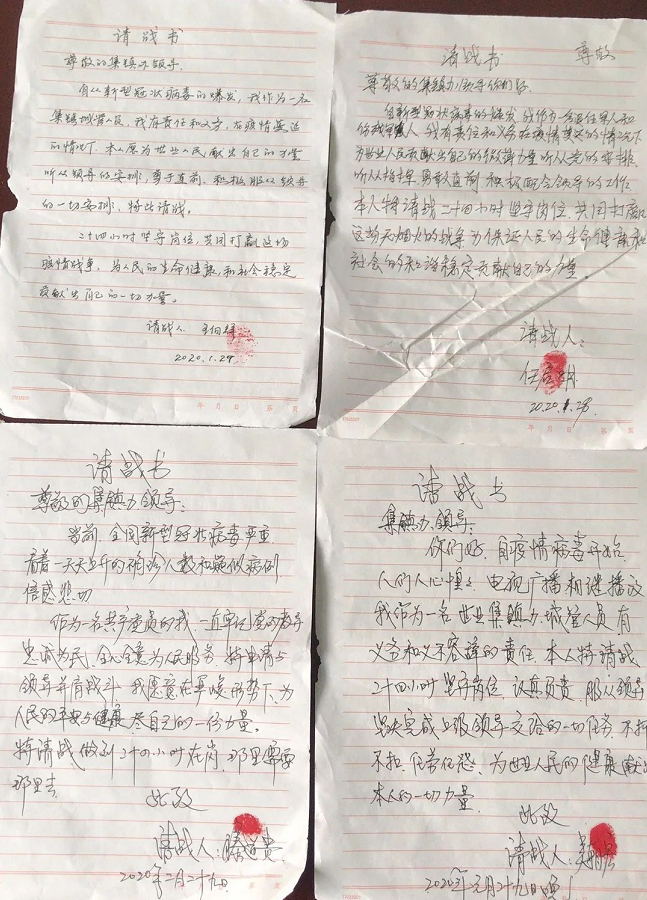 请战书
尊敬的集镇办领导:
自从新型冠状病毒的爆发,我作为一名
集镇城管人员,我有责任和义务,在疫情蔓延
的情况下,本人愿为世业人民献出自己的力量
听从领导的安排,勇于直前,积极服从领导
的一切安排,特此请战。
二十四小时坚守岗位,共同打赢这场
疫情战争,为人民的生命健康,和社会稳定
贡献出自己的一切力量。
请战人
2020.1.29
年 月 日 第 页
请战书
尊敬
尊敬的集镇办领导你们好
自新型冠状病毒的爆发我作为一名
我有责任和义务在疫情蔓延的情况下
为世业人民贡献出自己的微薄力量听从党的安排
听从指挥勇敢直前积极配合领导的工作
本人特请战二十四小时坚守岗位共同打赢
这场无烟火的战争为保证人民的生命健康和
社会的和谐稳定贡献自己的力量
请战人:
2020.1.29.
年 月 日 第 页
请战书
尊敬的集镇办领导:
当前,全国新型冠状病毒严重
看着一天天上升的确诊人数和疑似病例
倍感悲切
作为一名共产党员的我一直牢记党的教导
忠诚为民,全心全意为人民服务,特申请与
领导并肩战斗 我愿意在严峻形势下,为
人民的平安与健康尽自己的一份力量。
特请战做到二十四小时在岗,那里需要
那里去
此致
请战人:滕道贵
2020年二月二十九日
请战书
集镇办领导:
你们好,自疫情病毒开始,
人们人心惶惶 电视广播相继播放
我作为一名世业集镇办城管人员有
义务和义不容辞的责任.本人特请战
二十四小时坚守岗位.认真负责.服从领导
坚决完成上级领导交给的一切任务.不折
不扣.任劳任怨.为世业人民的健康献出
本人的一切力量.
此致
请战人:
2020年元月二十九日晚